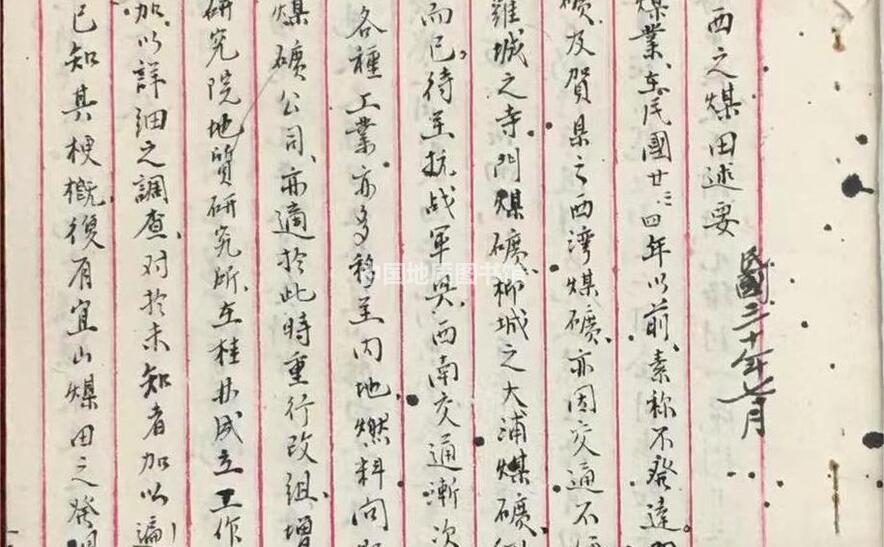 西之煤田述要
民國三十年七月
煤業、在民國廿三、四年以前、素称不發達。
礦、及賀県之西湾煤礦、亦因交通不便
雒城之寺門煤礦、柳城之大浦煤礦、
而已。待至抗战軍興、西南交通漸次
各種工業、亦多移至内地、燃料问
煤礦公司、亦適於此時重行改組、增
研究院地質研究所、在桂林成立工作
加以詳細之調查、对於未知者加以遍
已知其梗概、後有宜山煤田之發
中国地质图书馆